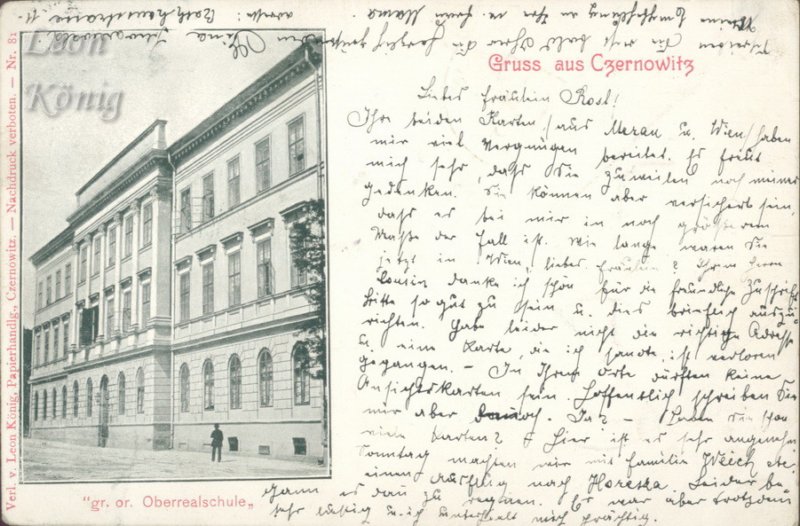 Leon
König
Gruss aus Czernowitz
Liebes Fräulein Rosl!
Ihre beiden Karten /aus Meran u. Wien/ haben
mir viel Vergnügen bereitet. Es freut
mich sehr, dass Sie zuweilen noch meiner
gedenken. Sie können aber versichert sein,
dass es bei mir in noch grösserem
Maße der Fall ist. Wie lange waren Sie
jetzt in Wien, liebes Fräulein? Ihrem Herrn
Cousin danke ich schön für die freundliche Zuschrift
Bitte so gut zu sein u. dies brieflich auszu-
richten. Habe leider nicht die richtige Adresse
u. eine Karte, die ich sandte, ist verloren
gegangen. - In Ihrem Orte dürften keine
Ansichtskarten sein. Hoffentlich schreiben Sie
mir aber dennoch. Ja? - Haben Sie schon
viele Karten? Hier ist es sehr angenehm
Sonntag machten wir mit Familie Weich etc.
einen Ausflug nach Horecza. Leider be-
gann es dann zu regnen. Es war aber trotzdem
sehr lustig u. ich unterhielt mich prächtig.
"gr. or. Oberrealschule„
Verl. v. Leon König, Papierhandlg., Czernowitz. — Nachdruck verboten. — Nr. 81